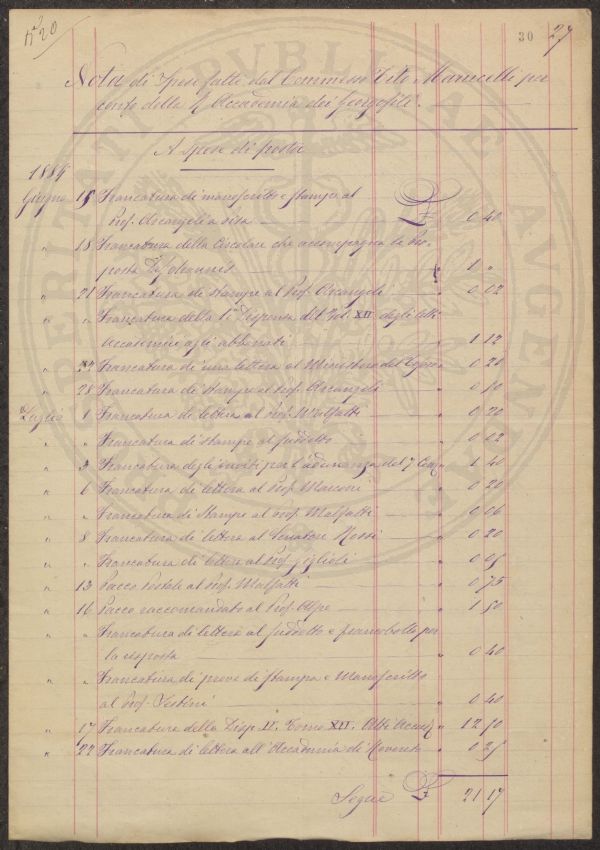 n° 20
30 27
Nota di Spese fatte dal Commesso Tito Marucelli per
conto della R. Accademia dei Georgofili.
A Spese di posta
1889
Giugno 15 Francatura di manoscritto e stampe al
Prof. Arcangeli a Pisa £ 0 40
" 18 Francatura della Circolare che accompagna la Pro-
posta 1 "
" 21 Francatura di stampe al Prof. Arcangeli " 0 02
" " Francatura della 1a Dispensa del Vol. XII degli Atti
Accademici agli abbonati " 1 12
" Francatura di una lettera al Ministero del " 0 20
" 28 Francatura di stampe al Prof. Arcangeli " 0 10
Luglio 1 Francatura di lettera al Prof. Malfatti " 0 20
" " Francatura di stampe al suddetto " 0 02
" 3 Francatura degli inviti per l'adunanza del 7 " 1 40
" 6 Francatura di lettera al Prof. Marconi " 0 20
" " Francatura di stampe al Prof. Malfatti " 0 06
" 8 Francatura di lettera al Senatore Rossi " 0 20
" " Francatura di lettera al Prof. Giglioli " 0 05
" 13 Pacco Postale al Prof. Malfatti " 0 75
" 16 Pacco raccomandato al Prof. Alpe " 1 50
" " Francatura di lettera al suddetto e francobollo per
la risposta " 0 40
" " Francatura di prove di stampa e Manoscritto
al Prof. Testini " 0 40
" 17 Francatura della Disp. II. Tomo XII. Atti Accad. " 12 50
" 22 Francatura di lettera all'Accademia di Rovereto " 0 25
Segue £ 21 17
PROSPERITATI PVBLICAE AVGENDAE